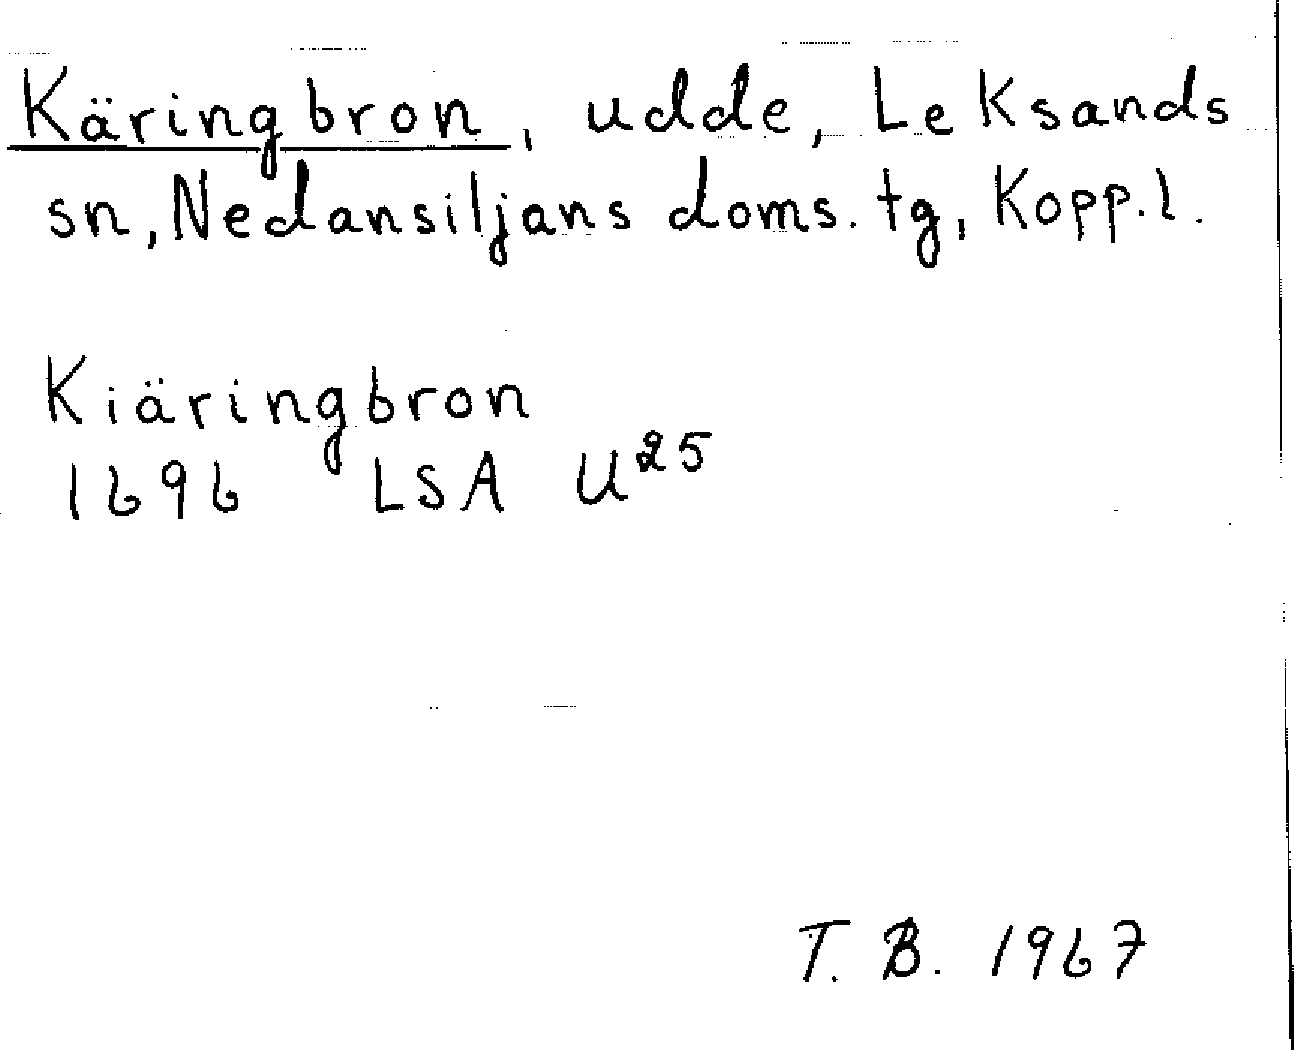 Käringbron, udde, Leksands
sn, Nedansiljans doms. tg, Kopp.l.
Kiäringbron
1696 LSA U²⁵
T. B. 1967